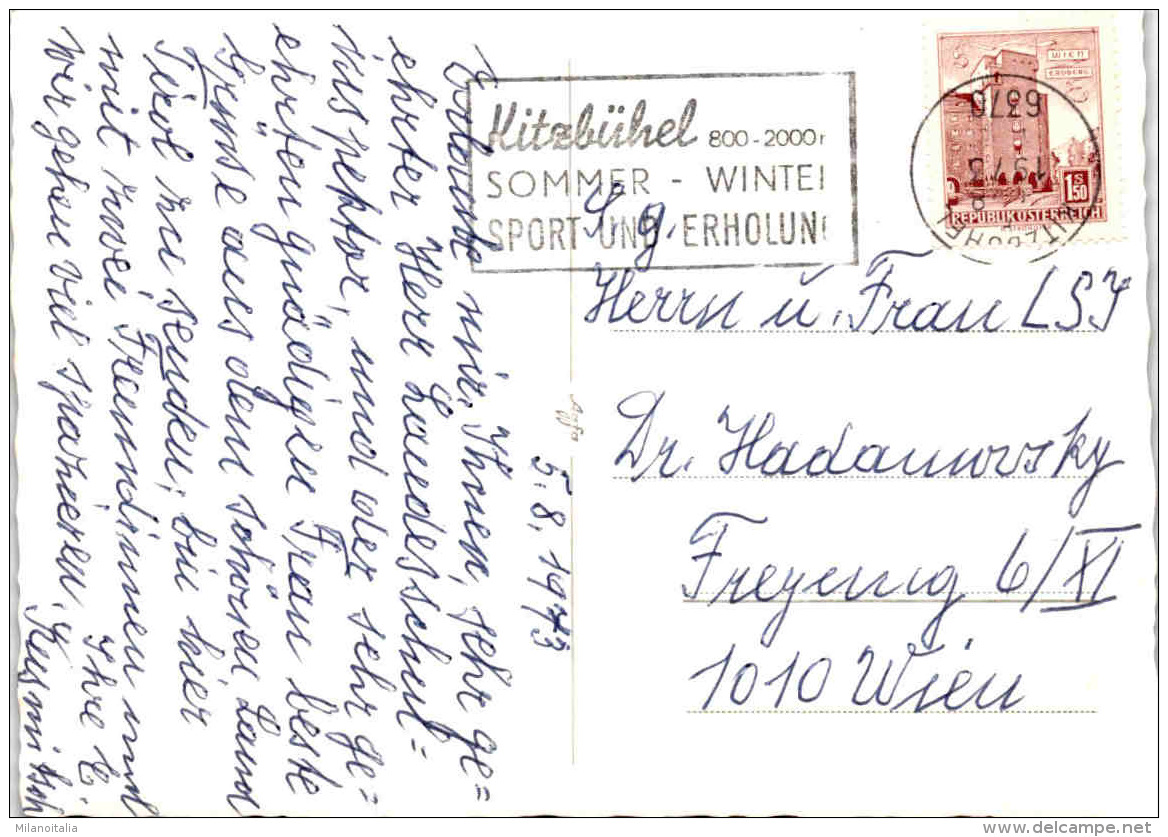 5.8.1973
Erlaube mir, Ihnen, sehr ge=
ehrter Herr Landesschul=
inspektor, und der sehr ge=
ehrten gnädigen Frau beste
Grüsse aus dem schönen Land
Tirol zu senden; bin hier
mit zwei Freundinnen und
wir gehen viel spazieren.
Ihre E.
Agfa
Kitzbühel 800-2000
SOMMER - WINTE
SPORT UND ERHOLUN
WIEN
ERDBERG
S
1.50
REPUBLIK ÖSTERREICH
6370
S.g.
Herrn u. Frau LSI
Dr. Hadamovsky
Freyung 6/XI
1010 Wien
Milanoitalia
delcampe.net